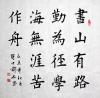 書山有路
勤為徑學
海無涯苦
作舟